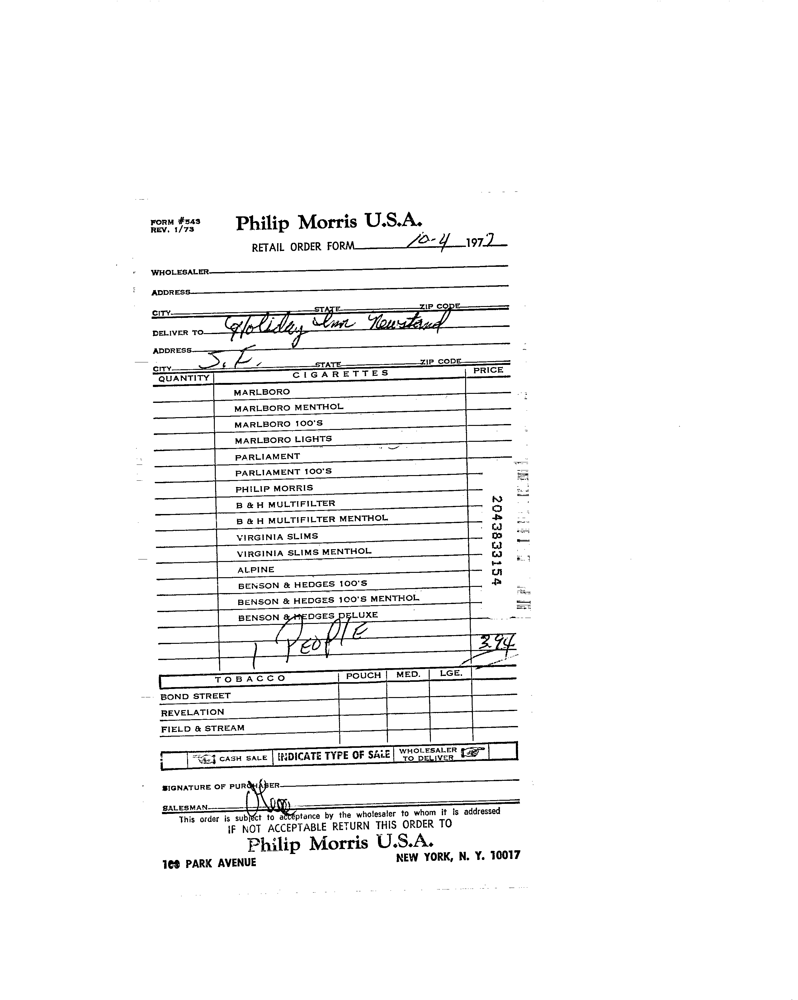 FORM #543
REV. 1/73
Philip Morris U.S.A.
RETAIL ORDER FORM 10-4 1977
WHOLESALER
ADDRESS
CITY STATE ZIP CODE
DELIVER TO Holiday Inn Newstand
ADDRESS
CITY STATE ZIP CODE
QUANTITY CIGARETTES PRICE
MARLBORO
MARLBORO MENTHOL
MARLBORO 100'S
MARLBORO LIGHTS
PARLIAMENT
PARLIAMENT 100'S
PHILIP MORRIS
B & H MULTIFILTER
B & H MULTIFILTER MENTHOL
VIRGINIA SLIMS
VIRGINIA SLIMS MENTHOL
ALPINE
BENSON & HEDGES 100'S
BENSON & HEDGES 100'S MENTHOL
BENSON & HEDGES DELUXE
2043833154
1 PEOPLE 3.94
TOBACCO POUCH MED. LGE.
BOND STREET
REVELATION
FIELD & STREAM
CASH SALE INDICATE TYPE OF SALE WHOLESALER TO DELIVER
SIGNATURE OF PURCHASER
SALESMAN
This order is subject to acceptance by the wholesaler to whom it is addressed
IF NOT ACCEPTABLE RETURN THIS ORDER TO
Philip Morris U.S.A.
100 PARK AVENUE NEW YORK, N. Y. 10017